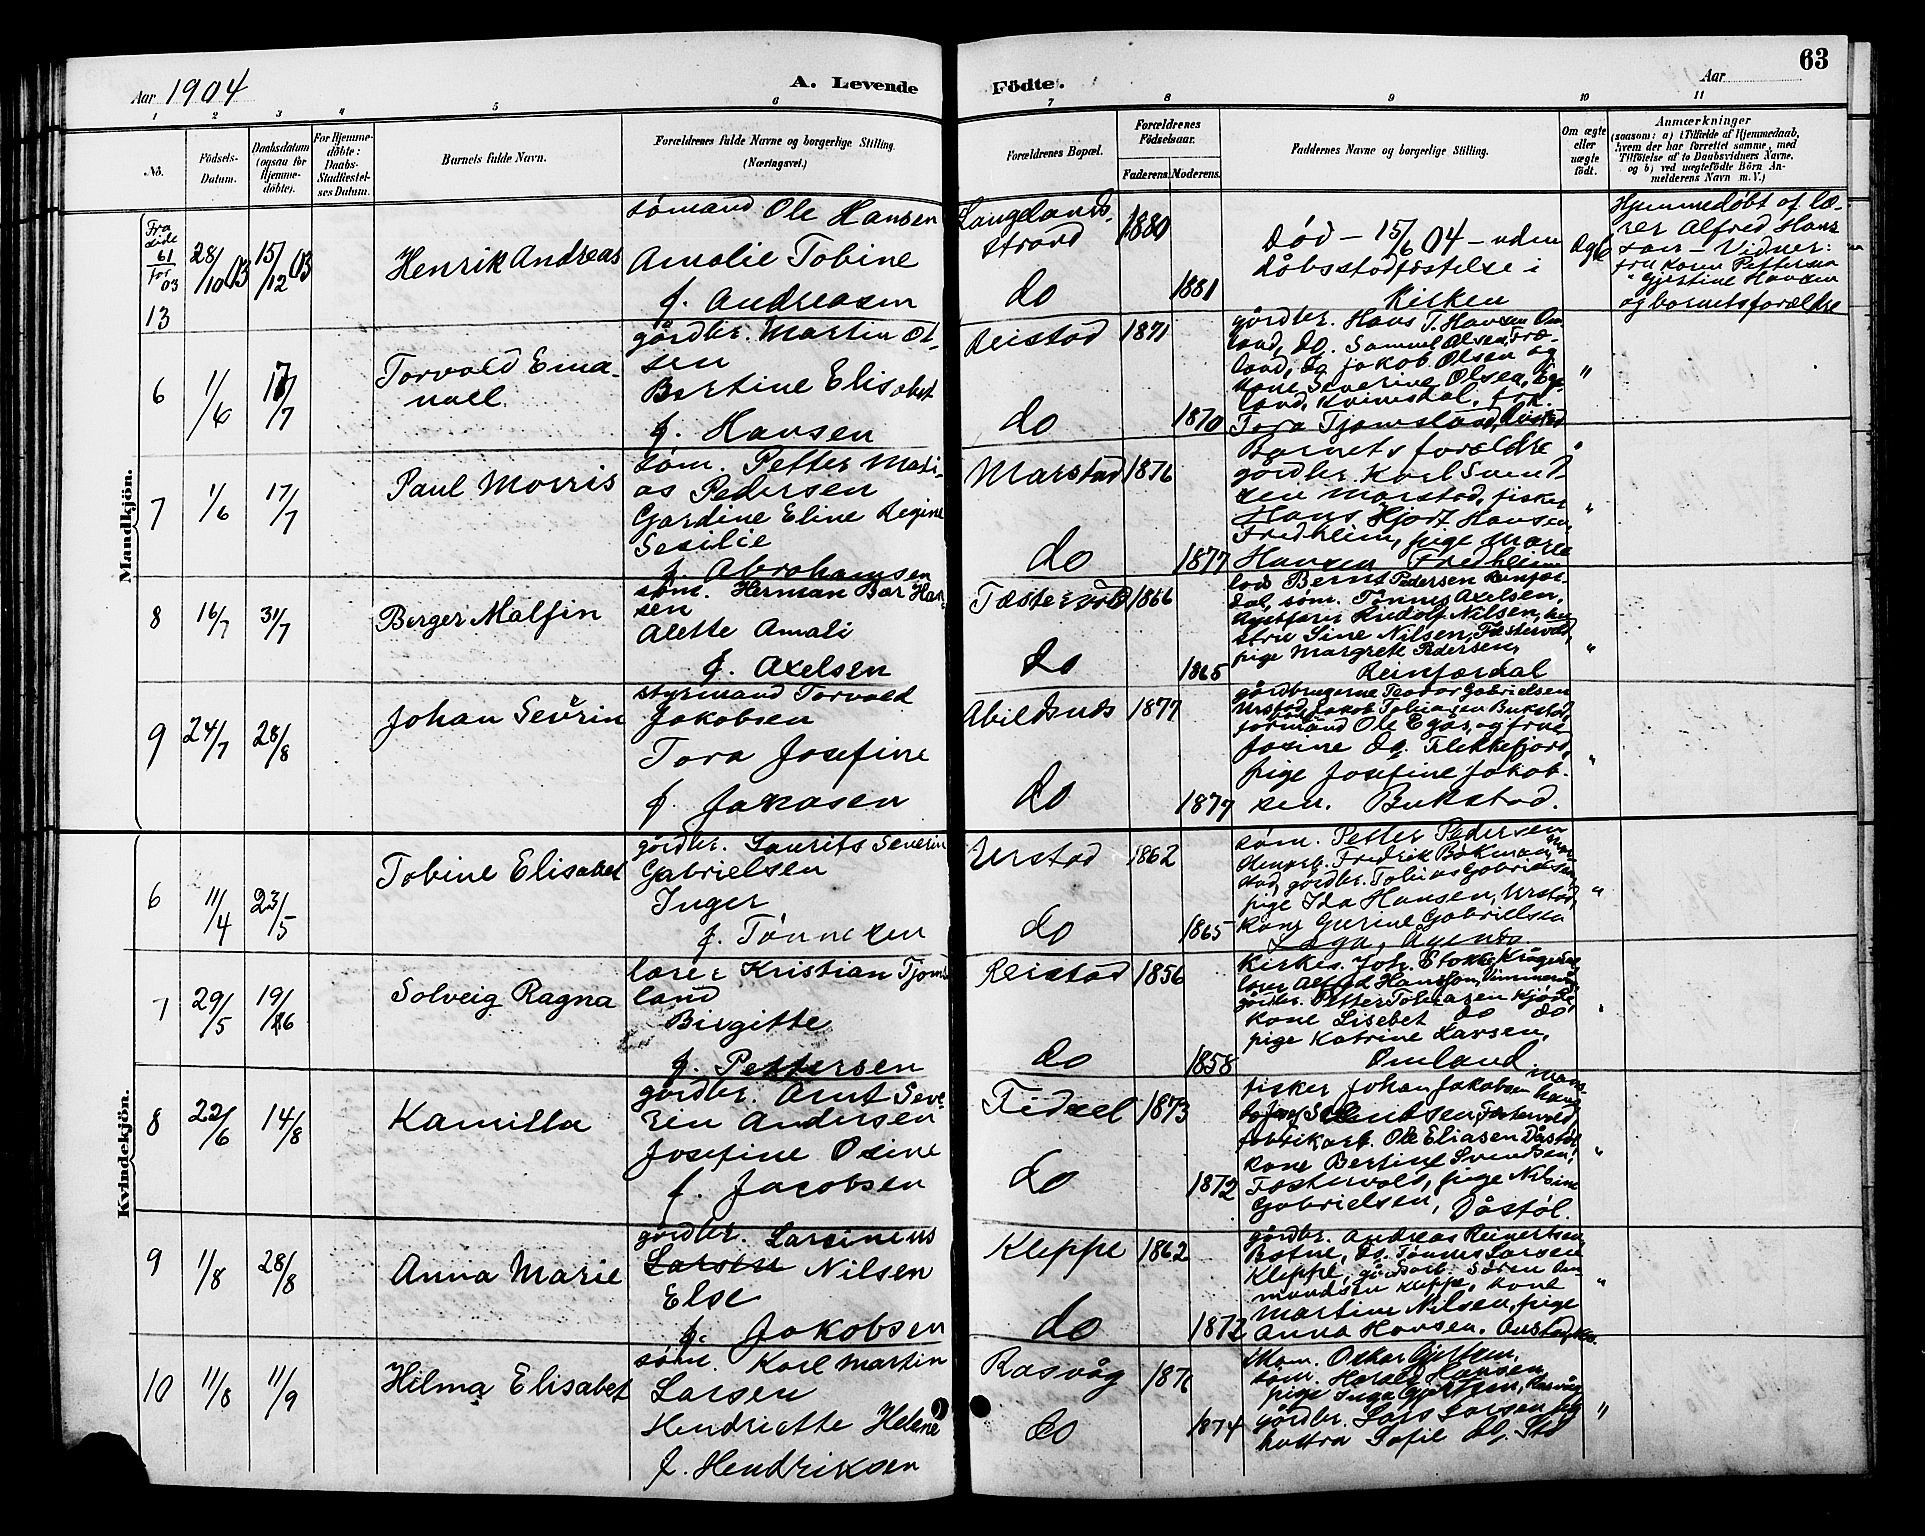 63
Aar 1904
A. Levende
Födte.
Aar
1 2 3 4 5 6 7 8 9 10 11
No.
Födsels-
Datum.
Daabsdatum
(ogsaa for
Hjemme-
döbte).
For Hjemme-
döbte:
Daabs-
Stadfæstel-
ses Datum.
Barnets fulde Navn.
Forældrenes fulde Navne og borgerlige Stilling.
(Næringsvei.)
Forældrenes Bopæl.
Forældrenes
Födselsaar.
Faderens.
Moderens.
Faddernes Navne og borgerlige Stilling.
Om ægte
eller
uægte
födt.
Anmærkninger
(saasom: a) i Tilfælde af Hjemmedaab,
hvem der har forrettet samme, med
Tilföielse af to Daabsvidners Navne,
og b) ved uægtefödte Börn An-
melderens Navn m. V.)
Mandkjön.
Fra
side
61
for
03
13
28/10 03
15/12 03
Henrik Andreas
sømand Ole Hansen
Amalie Tobine
f. Andreasen
Langelands-
strand
do
1880
1881
Død – 15/6 04 – uden
dåbsstadfæstelse i
Kirken
Ægte
Hjemmedøbt af læ-
rer Alfred Hans
son – Vidner:
fru Karen Pettersen
" Gjertine Hansen
og barnets forældre
6
1/6
17/7
Torvald Ema-
nuel.
gårdbr. Martin Ol-
sen
Bertine Elisabet
f. Hansen
Reistad
do
1871
1870
gårdbr. Hans T. Hansen Om-
land, do. Samuel Olsen, Frø-
land, do Jakob Olsen og
kone Severine Olsen, Ege-
land, Kvinesdal, frk.
Tora Tjomsland, Reistad
"
7
1/6
17/7
Paul Morris
søm. Petter Mati-
as Pedersen
Gardine Eline Regine
Sesilie
f. Abrahamsen
Marstad
do
1876
1877
Barnets forældre
gårdbr. Karl Samt
sen Marstad, fisker
Hans Hjort Hansen
Fredheim, pige Marie
Hansen Fredheim
"
8
16/7
31/7
Berger Malfin
søm. Herman Bar Han-
sen
Alette Amali
f. Axelsen
Fæstervold
do
1866
1865
lods Bernt Pedersen Reinfær-
dal, søm. Tønnes Axelsen,
Rudolf Nilsen, hu-
stru Sine Nilsen, Fæstervold,
pige Margrete Pedersen,
Reinfærdal
"
9
24/7
28/8
Johan Sevrin
styrmand Torvald
Jakobsen
Tora Josefine
f. Jakobsen
Abildsnæs
do
1877
1877
gårdbrugerne Teodor Gabrielsen
Urstad, Jakob Tobiasen Bukstad,
formand Ole Egås og frue
Josine do. Flekkefjord,
pige Josefine Jakob-
sen. Bukstad.
"
Kvindekjön.
6
11/4
23/5
Tobine Elisabet
gårdbr. Laurits Severin
Gabrielsen
Inger
f. Tønnesen
Urstad
do
1862
1865
søm. Petter Pedersen
Fredrik Bökman, Mar-
stad, gårdbr. Tobias Gabrielsen
pige Ida Hansen, Urstad,
kone Gurine Gabrielsen
Laga,
"
7
29/5
19/6
Solveig Ragna
lærer Kristian Tjoms-
land
Birgitte
f. Pettersen
Reistad
do
1856
1858
kirkes. Joh. Stokke
lærer Alfred Hansson,
gårdbr. Petter Tobiasen
kone Lisebet do do
pige Katrine Larsen,
Omland
"
8
22/6
14/8
Kamilla
gårdbr. Arnt Seve-
rin Andersen
Josefine Osine
f. Jacobsen
Fidsel
do
1873
1872
fisker Johan Jakobsen
Svendsen, Fæstervold
fabrikarb. Ole Eliasen Dåstøl,
kone Bertine Svendsen,
Fæstervold, pige Nilsine
Gabrielsen, Dåstøl.
"
9
1/8
28/8
Anna Marie
gårdbr. Larsinius
Larsen Nilsen
Else
f. Jakobsen
Kleppe
do
1862
1872
gårdbr. Andreas Reinertsen
Botne, do. Tønnes Larsen
Kleppe, gårdarb. Søren Am-
mundsen Kleppe, kone
Martine Nilsen, pige
Anna Hansen,
"
10
11/8
11/9
Hilma Elisabet
søm. Karl Martin
Larsen
Hendriette Helene
f. Hendriksen
Rasvåg
do
1876
1874
skom. Oskar Gjertsen,
søm. Harald Hansen
pige Inga Gjertsen, Rasvåg
gårdbr. Lars Larsen og
hustru Sofie do.
"